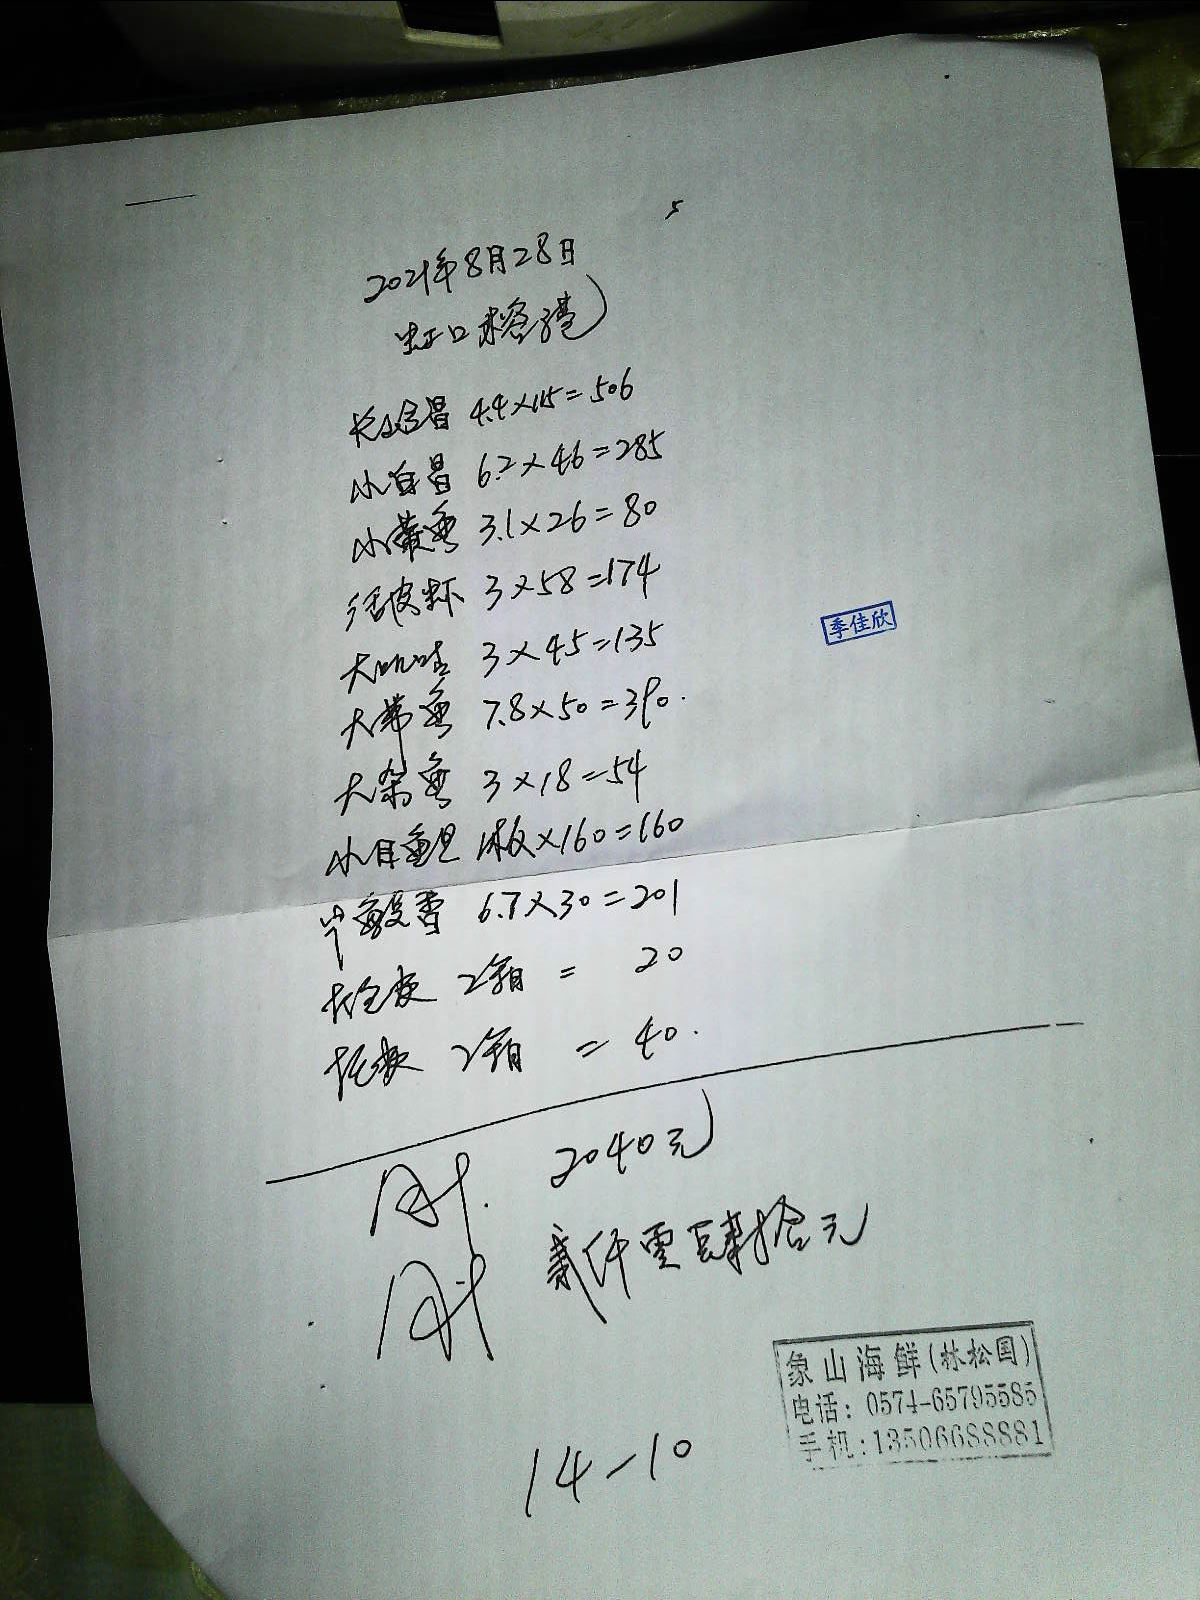 5
2021年8月28日
虹口榕港
4.4×115=506
小白昌 6.2×46=285
小黄鱼 3.1×26=80
活皮虾 3×58=174
大 3×45=135
大带鱼 7.8×50=390.
大杂鱼 3×18=54
小目鱼旦 1板×160=160
6.7×30=201
2箱 = 20
2箱 = 40.
2040元
贰仟零肆拾元
14-10
季佳欣
象山海鲜(林松国)
电话: 0574-65795585
手机:13506688881